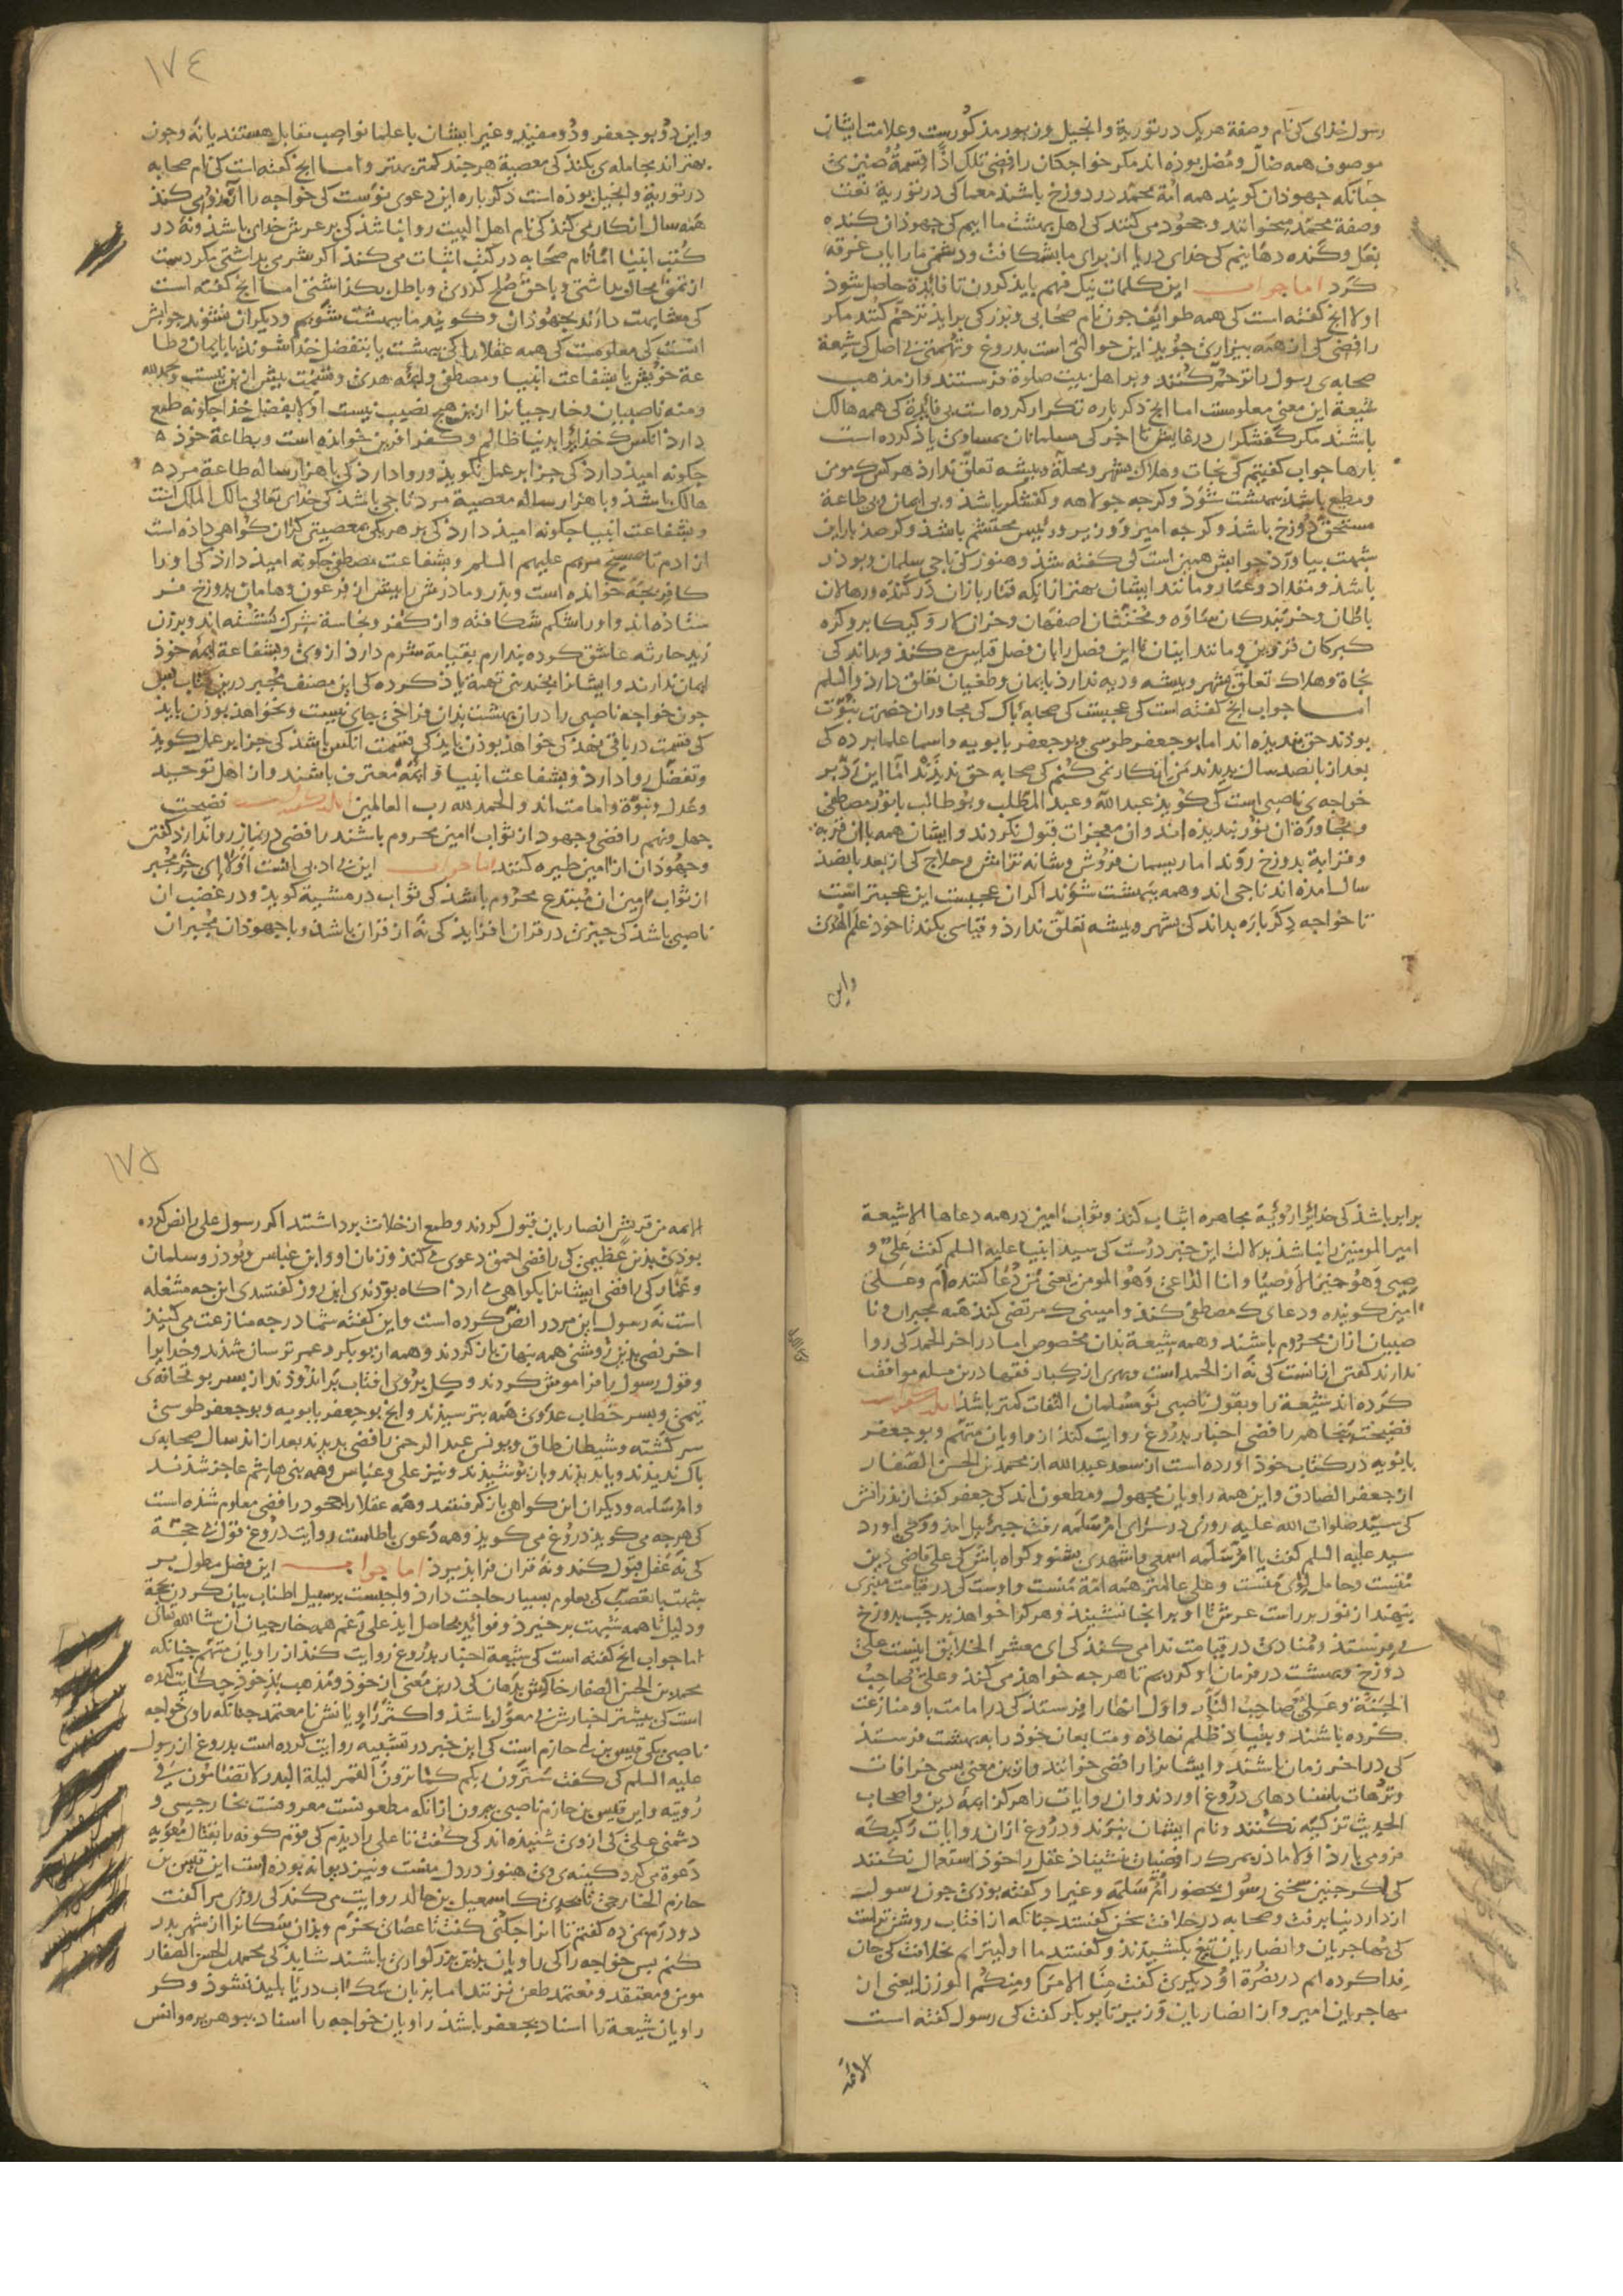 رسول خدای کی نام وصفة هریک در توریة وانجیل وزبور مذکورست وعلامت ایشان
موصوف همه ضال ومضل بوذه اند مکر خواجکان رافضی تلک اذا قسمة ضیزی
جنانکه جهوذان کویند همه امة محمد در دوزخ باشند معما کی در توریة نعت
وصفة محمد میخوانند وجحود می کنند کی اهل بهشت ما ایم کی جهوذان کنده
بغل وکنده دهانیم کی خدای دریا از برای ما بشکافت ودشمن ما را باب غرقه
کرد اما جواب این کلمات نیک فهم باید کردن تا فائدة حاصل شوذ
اولا انج کفته است کی همه طوایف جون نام صحابی وبزرکی براید ترحم کنند مکر
رافضی کی از همه بیزاری جوید این حوالتی است بدروغ وتهمتی بی اصل کی شیعة
صحابه‌ی رسول را ترحم کنند وبر اهل بیت صلوة فرستند واز مذهب
شیعة این معنی معلومست اما انج ذکر باره تکرار کرده است بی فایدة کی همه هالک
باشند مکر کفشکران درغایش تا اخر کی مسلمانان بمساوی یاذ کرده است
بارها جواب کفتیم کی نجات وهلاک بشهر ومحلة وبیشه تعلق ندارذ هرکس که مومن
ومطیع باشذ ببهشت شوذ وکرجه جولاهه وکفشکر باشذ وبی ایمان وبی طاعة
مستحق دوزخ باشذ وکرجه امیر ووزیر ورئیس محتشم باشذ وکر صذ بار این
شبهت بیاورد جوابش همین است کی کفته شذ وهنوز کی ناجی سلمان وبوذر
باشذ ومقداد وعمار ومانند ایشان بهتر از انکه قماربازان درکنده ورهلان
باطان وخربندکان ساوه ومخنثان اصفهان وخران
کبرکان قزوین ومانند اینان تا این فصل را بان فصل قیاس کنذ وبداند کی
نجاة وهلاک تعلق بشهر وبیشه ودیه ندارذ بایمان وطغیان تعلق دارذ والسلم
اما جواب انج کفته است کی عجبست کی صحابهٔ باک کی مجاوران حضرت نبوت
بوذند حق بندیذه اند اما بوجعفر طوسی وبوجعفر بابویه واسما علما برده کی
بعد از بانصد سال بدیدند من انکار نمی کنم کی صحابه حق ندیدند اما این
خواجه‌ی ناصبی است کی کوید عبد الله وعبد المطلب وبوطالب با نور مصطفی
ومجاورة ان نور بندیذه اند وان معجزات قبول نکردند وایشان همه با ان قربة
وقرابة بدوزخ روند اما ریسمان فروش وشانه تراش وحلاج کی از بعد بانصذ
سال امذه اند ناجی اند وهمه ببهشت شوند اکر ان عجبست این عجبتر است
تا خواجه دکر باره بداند کی بشهر وبیشه تعلق ندارذ وقیاسی بکند تا خوذ علم الهدی
واین
١٧٤
واین دو بوجعفر ودو مفید وغیر ایشان با علما نواصب مقابل هستند یا نه وجون
بهتراند مجامله‌ی بکند کی معصیة هرجند کمتر بهتر واما انج کفته است کی نام صحابه
در توریة وانجیل بوذه است ذکر باره این دعوی نوست کی خواجه را
همه سال انکار می کند کی نام اهل البیت روا نباشذ کی بر عرش خدای باشذ ونه در
کتب انبیا اما نام صحابه در کتب اثبات می کند اکر شرمی بداشتی مکر دست
از تمنی محال بداشتی وبا حق صلح کردی وباطل بکذاشتی اما انج کفته است
کی مشابهت دارند بجهوذان وکویند ما ببهشت شویم ودیکران نشوند جوابش
انست کی معلومست کی همه عقلا را کی بهشت یا بتفضل خذا شوند یا بایمان وطا
عة خویش یا بشفاعت انبیا ومصطفی وایمه هدی وقسمت بیش از این نیست وبحمد الله
ومنه ناصبیان وخارجیانرا ازین هیچ نصیب نیست اولا بفضل خذا جکونه طمع
دارذ انکس که خذایرا بدنیا ظالم وکفر افرین خوانده است وبطاعة خوذ
جکونه امید دارذ کی جزا بر عمل نکوید وروا دارذ کی با هزار ساله طاعة مرد
هالک باشذ وبا هزار ساله معصیة مرد ناجی باشذ کی خدای تعالی مالک الملک است
وبشفاعت انبیا جکونه امید دارذ کی بر هر یکی بمعصیتی کران کواهی داذه است
از ادم تا مسیح مریم علیهم السلم وبشفاعت مصطفی جکونه امید دارذ کی او را
کافر بجه خوانده است وبدر ومادرش را بیش از فرعون وهامان بدوزخ فر
ستاده اند واو را شکم شکافته واز کفر ونجاسة شرک شسته اند وبر زن
زید حارثه عاشق کرده بندارم بقیامة شرم دارذ ازوی وبشفاعة ایمه خوذ
ایمان ندارند وایشانرا بجندین تهمة یاذ کرده کی این مصنف مجبر درین کتاب بس
جون خواجه ناصبی را در ان بهشت بذان فراخی جای نیست ونخواهذ بوذن باید
کی قسمت در باقی نهذ کی خواهذ بوذن باید کی قسمت انکس باشذ کی جزا بر عمل کوید
وتفضل روا دارذ وبشفاعت انبیا وایمه معترف باشند واز اهل توحید
وعدل ونبوة وامامت اند والحمد لله رب العالمین فضیحت
جهل ونهم رافضی وجهود از ثواب امین محروم باشند رافضی در نماز روا ندارد کفتن
وجهوذان از امین طیره کنند اما جواب این بی ادبی انست اولا ای خر مجبر
از ثواب امین ان مبتدع محروم باشذ کی ثواب در مشیة کوید ودر غضب ان
ناصبی باشذ کی جیزی در قران افزاید کی نه از قران باشذ وبا جهوذان مجبران
برابر باشذ کی خذایرا رویة مجاهره اثبات کند وثواب امین در همه دعاها الا شیعة
امیر المومنین را نباشذ بدلالت این خبر درست کی سید انبیا علیه السلم کفت علی و
صیی وهو خیر الاوصیا وانا الداعی وهو المومن یعنی من دعا کننده ام وعلی
امین کوینده ودعای که مصطفی کند وامینی که مرتضی کند همه مجبران ونا
صبیان ازان محروم باشند وهمه شیعة بذان مخصوص اما در اخر الحمد کی روا
ندارند کفتن از انست کی نه از الحمد است وبهری از کبار فقها درین مسله موافقت
کرده اند شیعة را وبقول ناصبی نو مسلمان التفات کمتر باشذ
فضیحت بنجاهم رافضی اخبار بدروغ روایت کند از راویان متهم وبوجعفر
بابویه در کتاب خوذ اورده است از سعد عبد الله از محمد بن الحسن الصفار
از جعفر الصادق واین همه راویان مجهول ومطعون اند کی جعفر کفت از بذرانش
کی سید صلوات الله علیه روزی در سرای ام سلمه رفت جبرئیل امذ ووحی اورد
سید علیه السلم کفت یا ام سلمه اسمعی واشهدی بشنو وکواه باش کی علی قاضی دین
منست وحامل لوی منست وعلی عالمتر همه امة منست واوست کی در قیامت منبری
بنهند از نور بر راست عرش تا او بر انجا نشیند وهر کرا خواهذ برجب بدوزخ
می فرستد ومنادی در قیامت ندا می کند کی ای معشر الخلایق اینست علی
دوزخ وبهشت در فرمان او کردیم تا هرجه خواهذ می کند وعلی صاحب
الجنة وعلی صاحب النار واول انها را فرستد کی در امامت با او منازعت
کرده باشند وبنیاذ ظلم نهاذه ومتابعان خوذ را به بهشت فرستذ
کی در اخر زمان باشند وایشانرا رافضی خوانند وازین معنی بسی خرافات
وترهات باسنادهای دروغ اوردند وان روایات را هرکز ایمهٔ دین واصحاب
الحدیث تزکیه نکنند ونام ایشان نبرند ودروغ ازان روایات رکیکه
فرو می بارذ اولا مادر بمرک رافضیان نشیناذ عقل را خوذ استعمال نکنند
کی اکر جنین سخنی رسول بحضور ام سلمه وغیر او کفته بوذی جون رسول
از دار دنیا برفت وصحابه در خلافت سخن کفتند جنانکه از افتاب روشن تر است
کی مهاجریان وانصاریان تیغ بکشیدند وکفتند ما اولیتریم بخلافت کی جان
فدا کرده ایم در نصرة او ودیکری کفت منا الامرا ومنکم الوزرا یعنی از
مهاجریان امیر واز انصاریان وزیر تا بوبکر کفت کی رسول کفته است
الایمة
١٧٥
الایمه من قریش انصاریان قبول کردند وطمع از خلافت برداشتند اکر رسول علی را نص کرده
بوذی بدین عظیمی کی رافضی احمق دعوی می کند وزنان او وابن عباس وبوذر وسلمان
وعمار کی رافضی ایشانرا بکواهی می ارد اکاه بوذندی این روز کفتندی این جه مشغله
است نه رسول این مرد را نص کرده است واین کفته شما در جه منازعت می کنید
اخر نصی بدین روشنی همه بنهان باز کردند وهمه از بوبکر وعمر ترسان شدند وخدایرا
وقول رسول را فراموش کردند وکل بروی افتاب براندوذند از بسر بو قحافه‌ی
تیمی وبسر خطاب عدوی همه بترسیذند وانج بوجعفر بابویه وبوجعفر طوسی
سرکشته وشیطان طاق ویونس عبد الرحمن رافضی بدیدند بعد از اند سال صحابه‌ی
باک ندیدند ویا بدیذند وباز بوشیدند ونیز علی وعباس وهمه بنی هاشم عاجز شذند
وام سلمه ودیکران این کواهی باز کرفتند وهمه عقلا را جحود رافضی معلوم شذه است
کی هرجه می کوید دروغ می کوید وهمه دعوی باطلست روایت دروغ قول بی حجة
کی نه عقل قبول کند ونه قران فرا بذیرد اما جواب این فصل مطول بر
شبهت با تعصب کی بعلوم بسیار حاجت دارذ واجبست بر سبیل اطناب بیان کردن بحجة
ودلیل تا همه شبهت برخیرذ وفواید بحاصل اید علی رغم همه خارجیان ان شا الله تعالی
اما جواب انج کفته است کی شیعة اخبار بدروغ روایت کند از راویان متهم جنانکه
محمد بن الحسن الصفار خاکش بدهان کی درین معنی از خوذ ومذهب بذ خوذ حکایت کرده
است کی بیشتر اخبارش بی معول باشذ واکثر راویانش نا معتمد جنانکه راوی خواجه
ناصبی یکی قیس بن ابی حازم است کی این خبر در تشبیه روایت کرده است بدروغ از رسول
علیه السلم کی کفت سترون ربکم کما ترون القمر لیلة البدر لا تضامون فی
رویته واین قیس بن حازم ناصبی بیرون از انکه مطعونست معروفست بخارجیی و
دشمنی علی کی ازوی شنیذه اند کی کفت تا علی را دیدم کی قوم کوفه را بقتال معویه
دعوة می کرد کینه‌ی وی هنوز در دل منست ونیز دیوانه بوذه است این قیس بن
حازم الخارجی تا بحدی که اسمعیل بن خالد روایت می کند کی روزی مرا کفت
دو درم بمن ده کفتم تا انرا جکنی کفت تا عصائی بخرم وبذان سکانرا از شهر بدر
کنم بس خواجه را کی راویان بدین بزرکواری باشند شاید کی محمد بن الحسن الصفار
مومن ومعتقد ومعتمد طعن نزند اما بزبان سک اب دریا بلیذ نشوذ وکر
راویان شیعة را اسناد بجعفر باشذ راویان خواجه را اسناد ببوهریره وانس